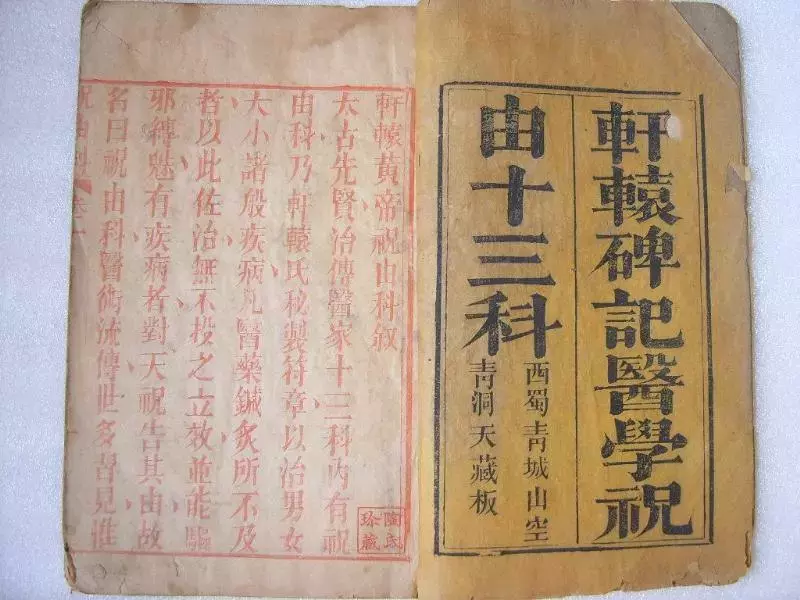 軒轅碑記醫學祝
由十三科
西蜀青城山空
青洞天藏板
軒轅黃帝祝由科敘
太古先賢治傳醫家十三科內有祝
由科乃軒轅氏秘製符章以治男女
大小諸般疾病凡醫藥鍼炙所不及
者以此佐治無不投之立效並能驅
邪縛魅有疾病者對天祝告其由故
名曰祝由科醫術流傳世多習見惟
祝由科
陶氏
珍藏